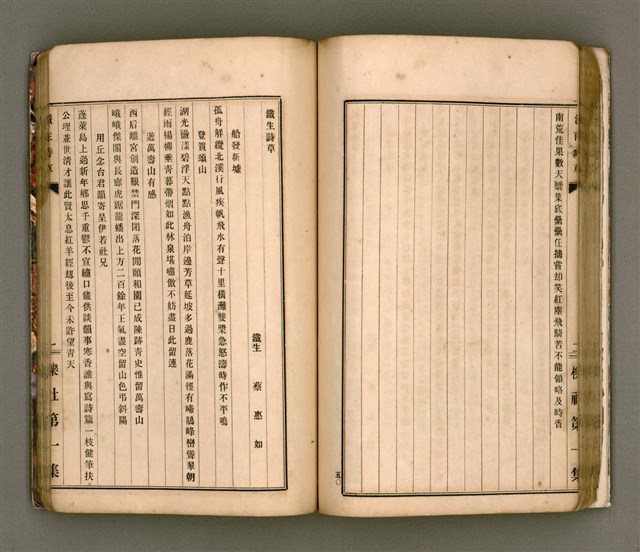 南荒佳果數天漿集底纍纍任擣嘗却笑紅塵飛騎苦不能領略及時香
五〇
鐵生詩草
鐵生 蔡惠如
船發新墟
孤舟解纜北溪行風疾帆飛水有聲十里橫灘雙槳急怒濤時作不平鳴
登寘頭山
湖光瀲灧碧浮天點點漁舟泊岸邊芳草延坡多過鹿落花滿徑有啼鵑峰巒聳翠朝
經雨楊柳垂青暮帶烟如此林泉堪嘯傲不妨盡日此留連
遊萬壽山有感
西后離宮創造艱禁門深閉落花閒頤和園已成陳跡靑史惟留萬壽山
峨峨傑閣與長廊虎踞龍蟠出上方二百餘年王氣盡空留山色弔斜陽
用丘念台君韻寄呈伊若社兄
蓬萊島上過新年鄉思千重鬱不宣繡口儘供談韻事寒香誰與寫詩篇一枝健筆扶
公理並世淸才讓此賢太息紅羊經刼後至今未許望青天
二 櫟社第一集